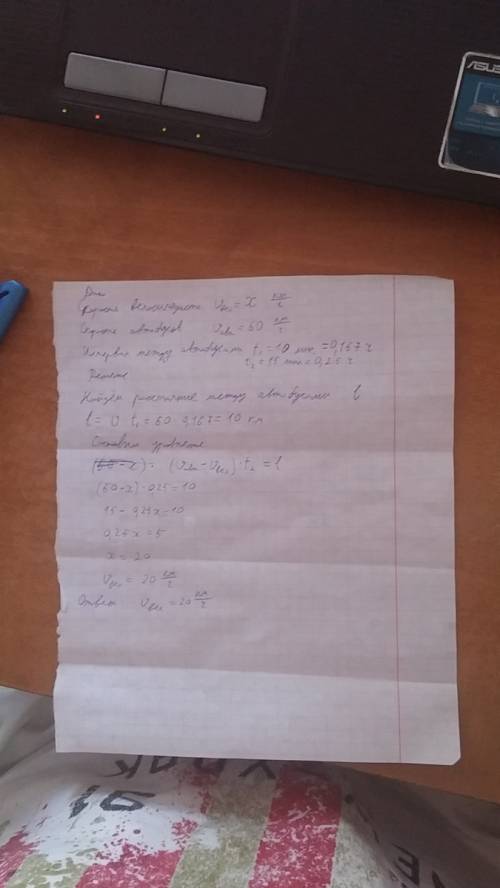 ASUS
Дано
Скорость велосипедиста Vвел = x км/ч
Скорость автобусов Vавт = 60 км/ч
Интервал между автобусами t₁ = 10 мин. = 0,167 ч
t₂ = 15 мин = 0,25 ч
Решение
Найдём расстояние между автобусами l
l = V t₁ = 60 · 0,167 = 10 км
Составим уравнение
(60 - x) · (Vавт - Vвел) · t₂ = l
(60 - x) · 0,25 = 10
15 - 0,25x = 10
0,25x = 5
x = 20
Vвел = 20 км/ч
Ответ Vвел = 20 км/ч